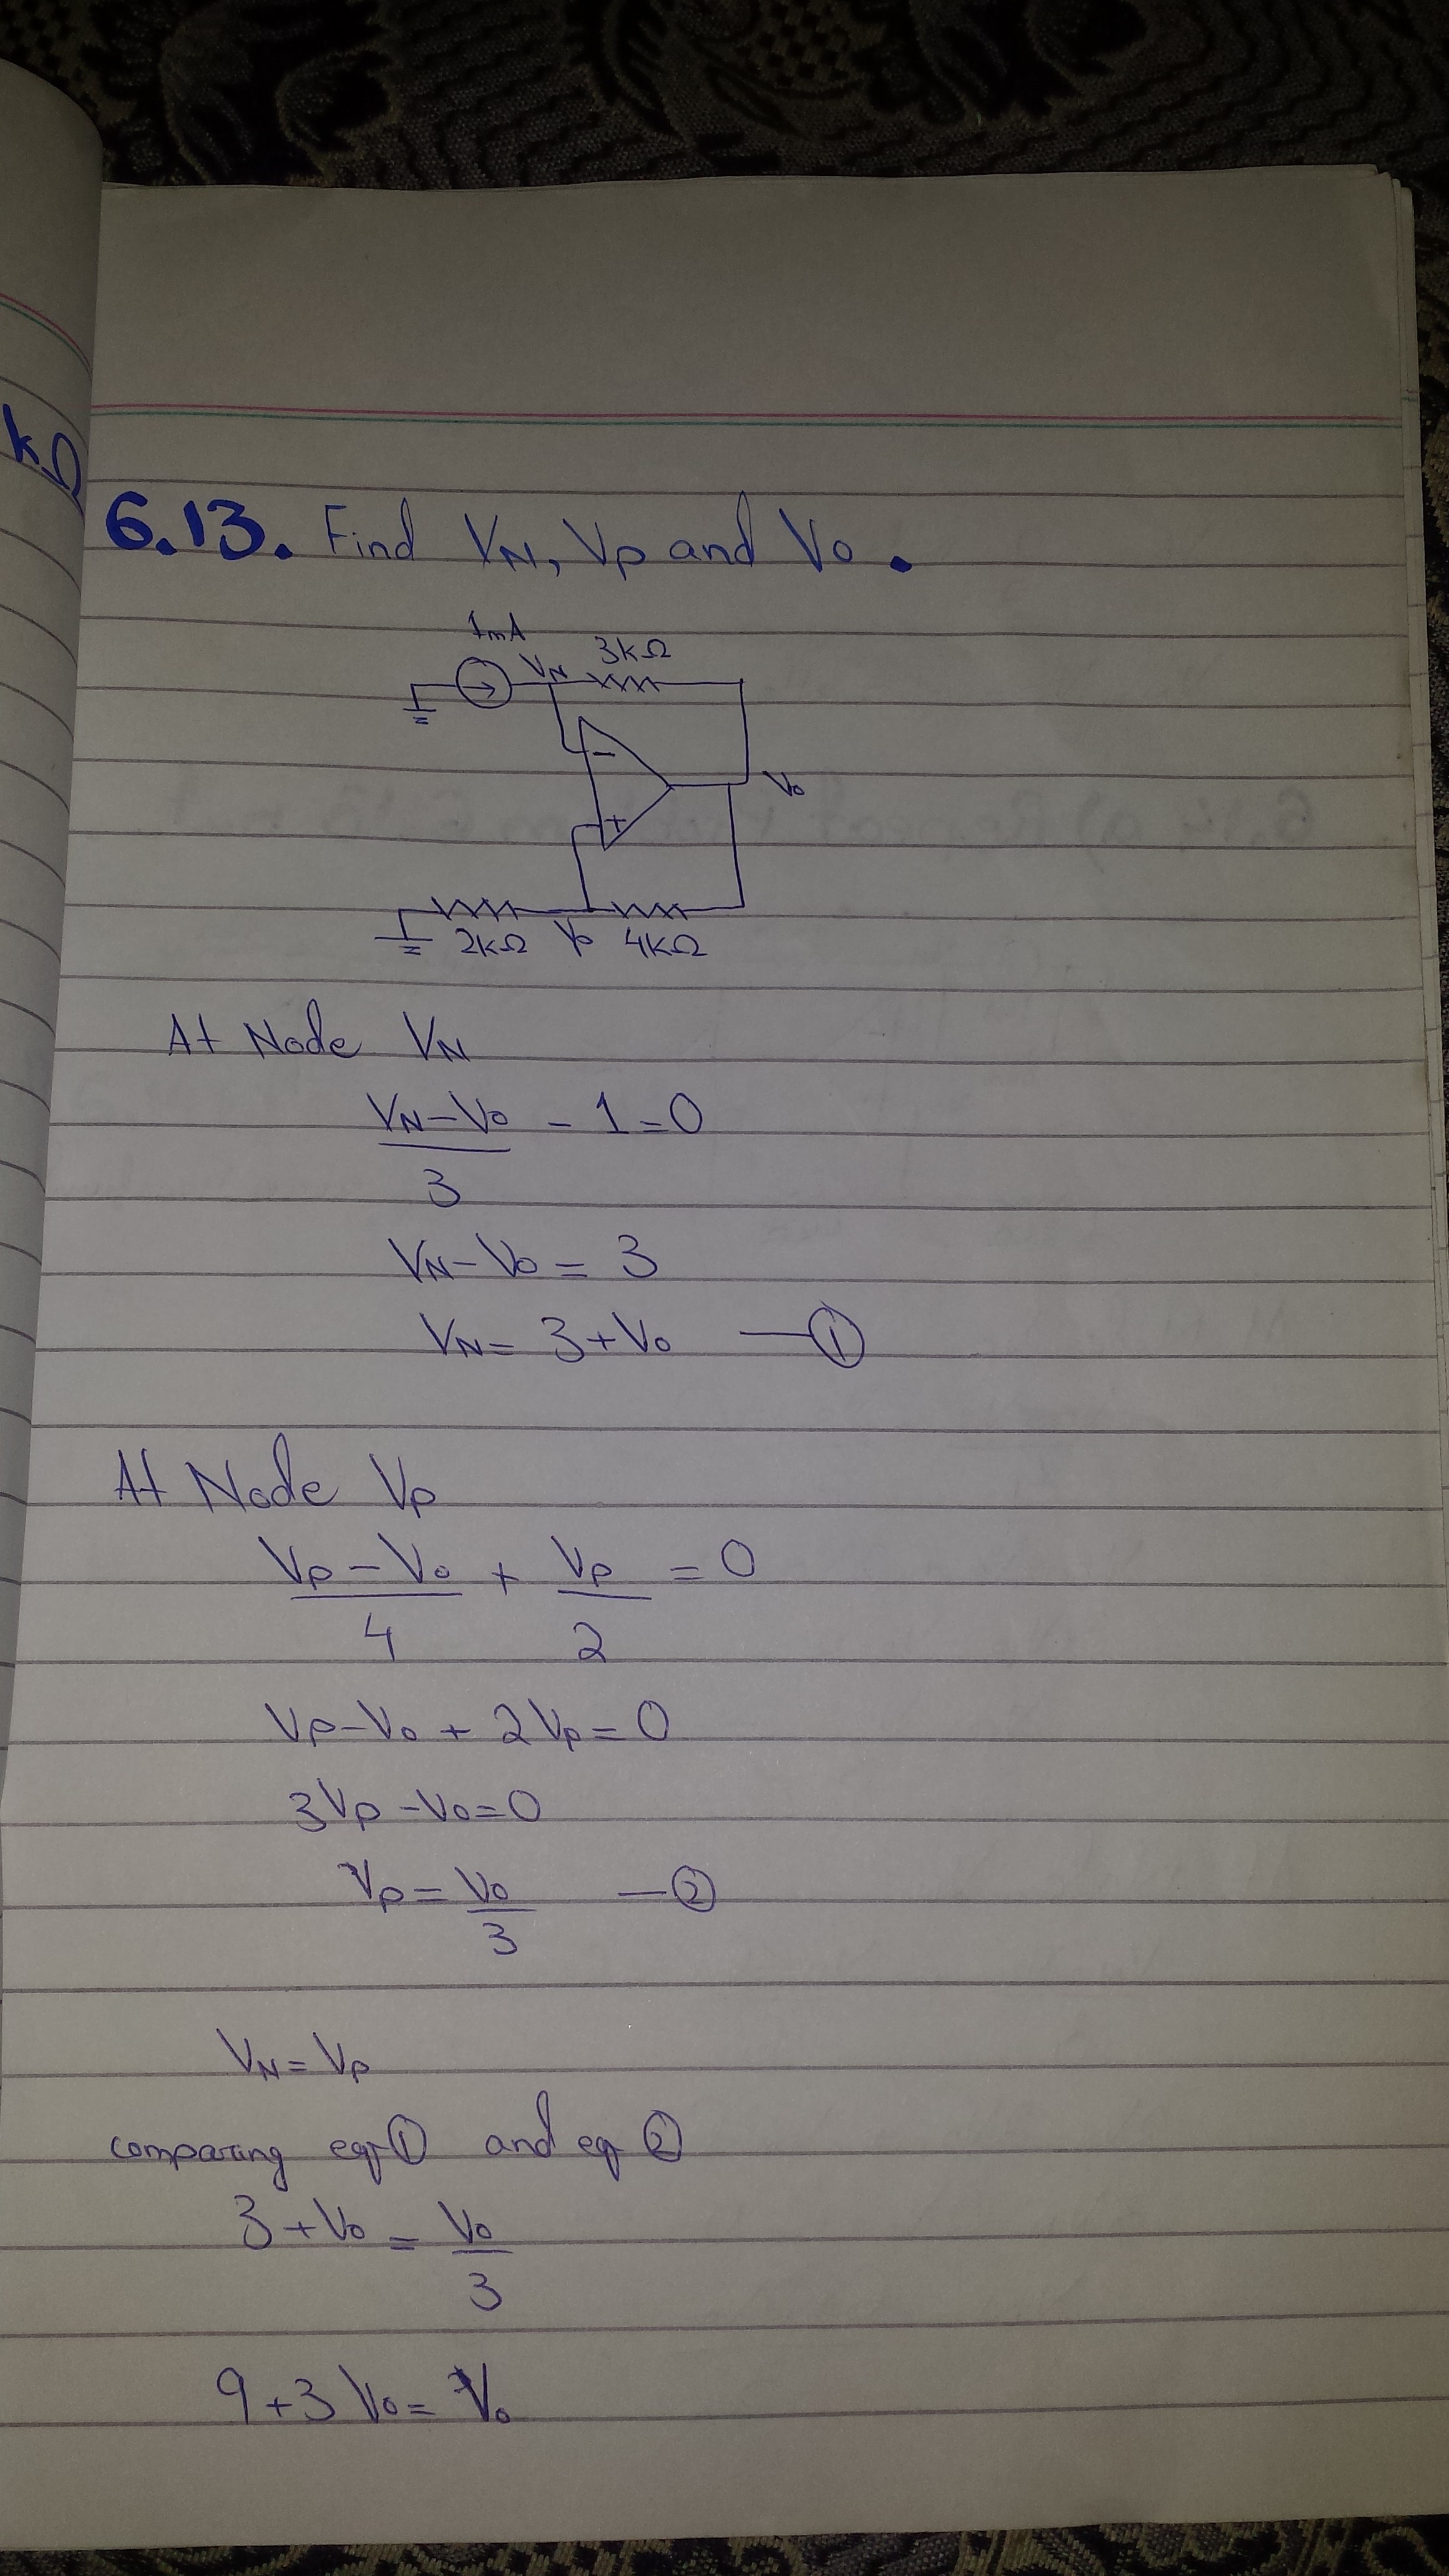 kΩ
6.13. Find VN, Vp and Vo.
1mA
VN 3kΩ
−
Vo
+
2kΩ Vp 4kΩ
At Node VN
VN-Vo/3 - 1 = 0
VN-Vo = 3
VN = 3+Vo —①
At Node Vp
Vp-Vo/4 + Vp/2 = 0
Vp-Vo + 2Vp = 0
3Vp-Vo = 0
Vp = Vo/3 —②
VN = Vp
comparing eq① and eq②
3+Vo = Vo/3
9+3Vo = Vo